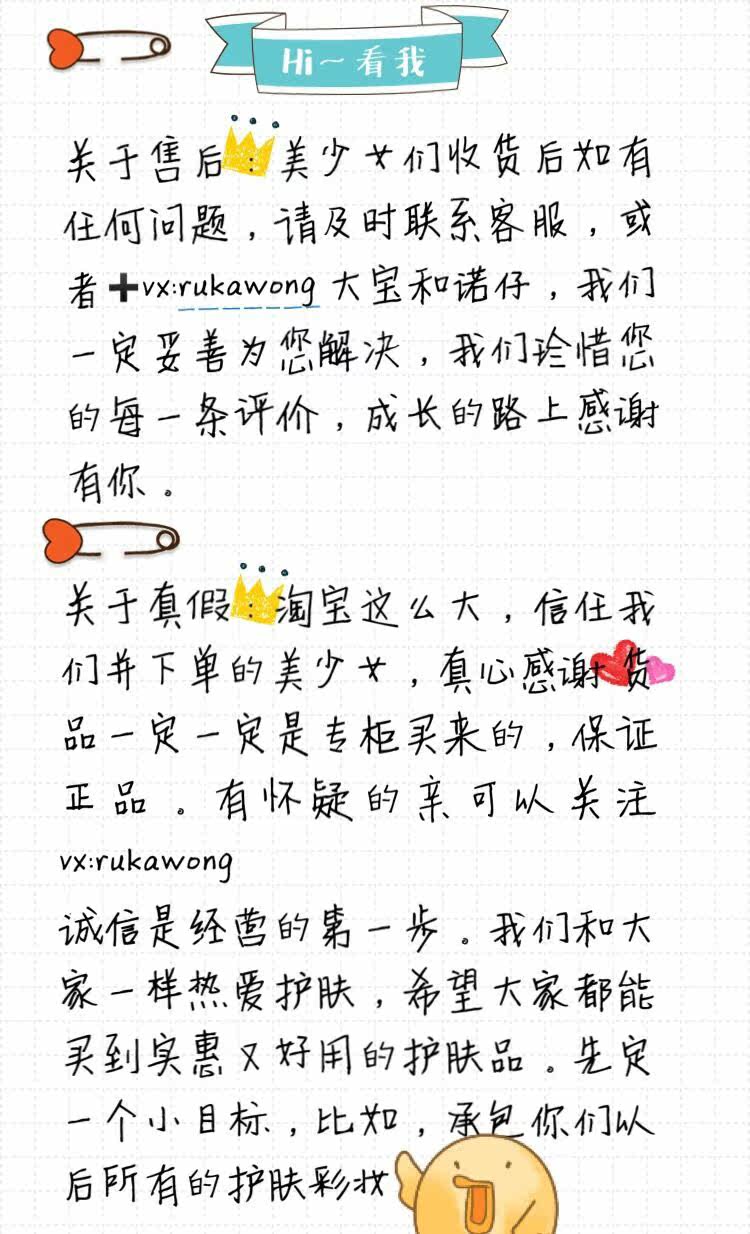 Hi～看我
关于售后：美少女们收货后如有
任何问题，请及时联系客服，或
者➕vx:rukawong 大宝和诺仔，我们
一定妥善为您解决，我们珍惜您
的每一条评价，成长的路上感谢
有你。
关于真假：淘宝这么大，信任我
们并下单的美少女，真心感谢 货
品一定一定是专柜买来的，保证
正品。有怀疑的亲可以关注
vx:rukawong
诚信是经营的第一步。我们和大
家一样热爱护肤，希望大家都能
买到实惠又好用的护肤品。先定
一个小目标，比如，承包你们以
后所有的护肤彩妆